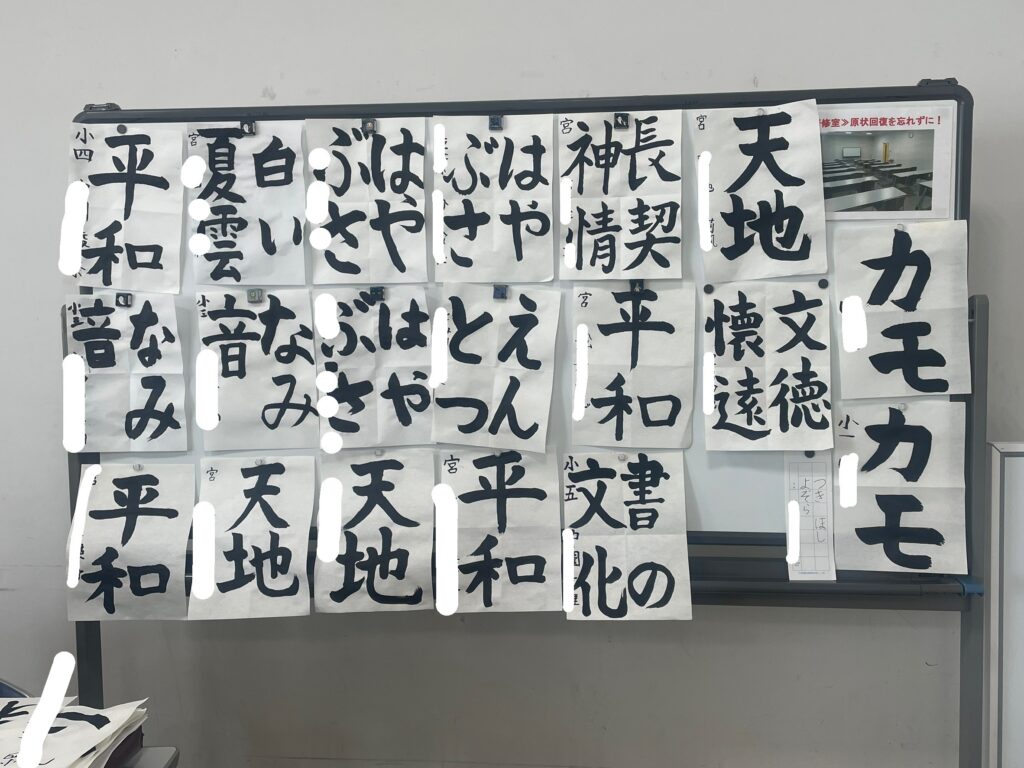 平和
小四
白い
夏雲
宮
はや
ぶさ
はや
ぶさ
長契
神情
宮
天地
宮
修室≫原状回復を忘れずに!
カモ
なみ
音
小三
なみ
音
小三
はや
ぶさ
えん
とつ
平和
宮
文徳
懐遠
カモ
小一
平和
天地
宮
天地
平和
宮
書の
文化
小五
つき ほし
よぞら